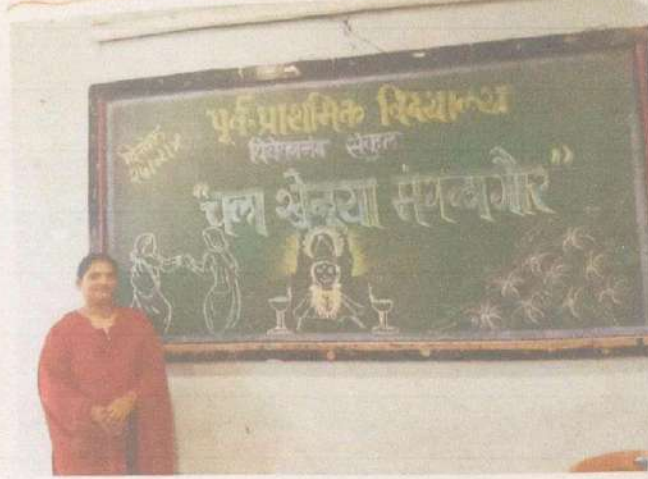 पूर्व प्राथमिक विद्यालय
विवेकानंद संकुल
"चला खेळूया मंगळागौर"